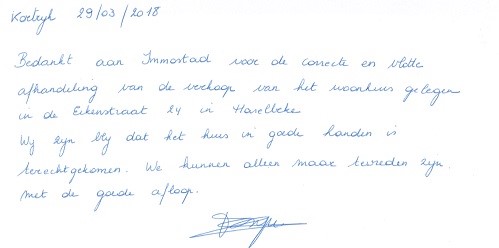 Kortrijk 29/03/2018
Bedankt aan Immostad voor de correcte en vlotte
afhandeling van de verkoop van het woonhuis gelegen
in de Eikenstraat 24 in Harelbeke
Wij zijn blij dat het huis in goede handen is
terechtgekomen. We kunnen alleen maar tevreden zijn
met de goede afloop.